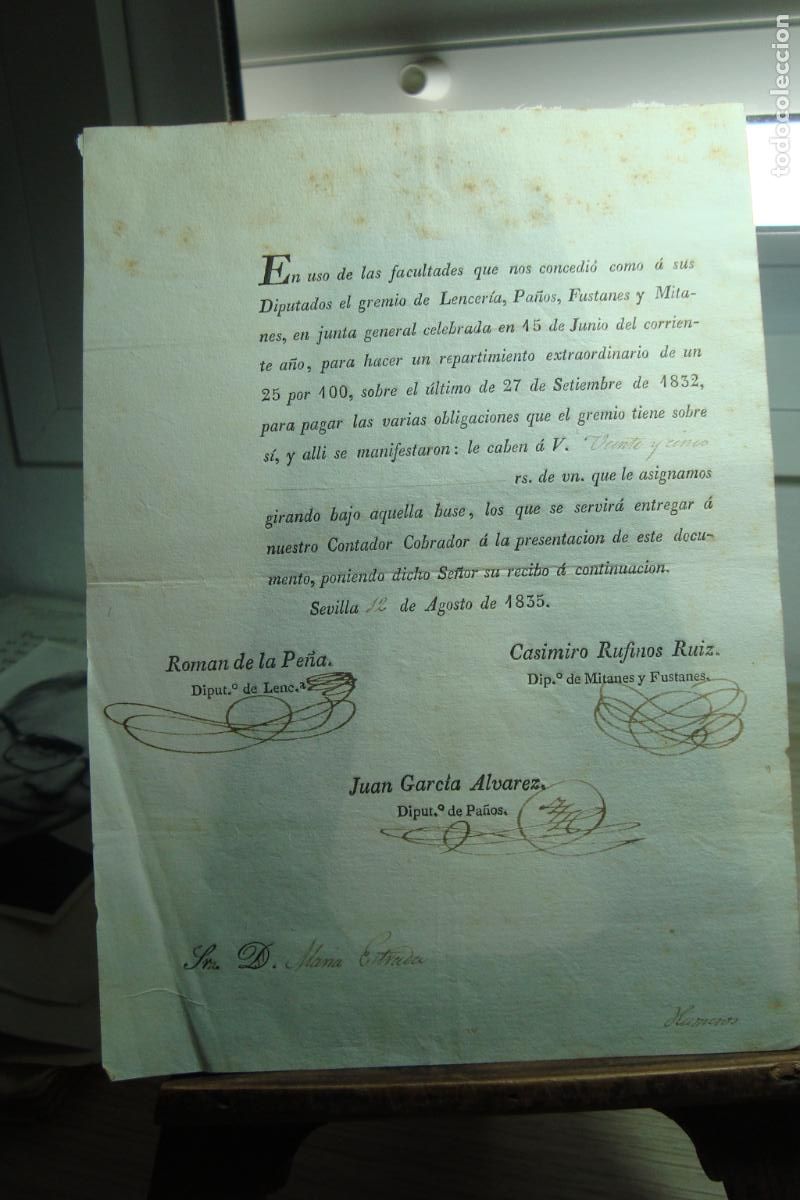 En uso de las facultades que nos concedió como á sus
Diputados el gremio de Lencería, Paños, Fustanes y Mita-
nes, en junta general celebrada en 15 de Junio del corrien-
te año, para hacer un repartimiento extraordinario de un
25 por 100, sobre el último de 27 de Setiembre de 1832,
para pagar las varias obligaciones que el gremio tiene sobre
sí, y alli se manifestaron: le caben á V. Veinte y cinco
rs. de vn. que le asignamos
girando bajo aquella base, los que se servirá entregar á
nuestro Contador Cobrador á la presentacion de este docu-
mento, poniendo dicho Señor su recibo á continuacion.
Sevilla 12 de Agosto de 1835.
Roman de la Peña.
Diput.º de Lenc.ª
Casimiro Rufinos Ruiz.
Dip.º de Mitanes y Fustanes.
Juan García Alvarez.
Diput.º de Paños.
Sr. D. Maria Estrada
Humeros
todocoleccion